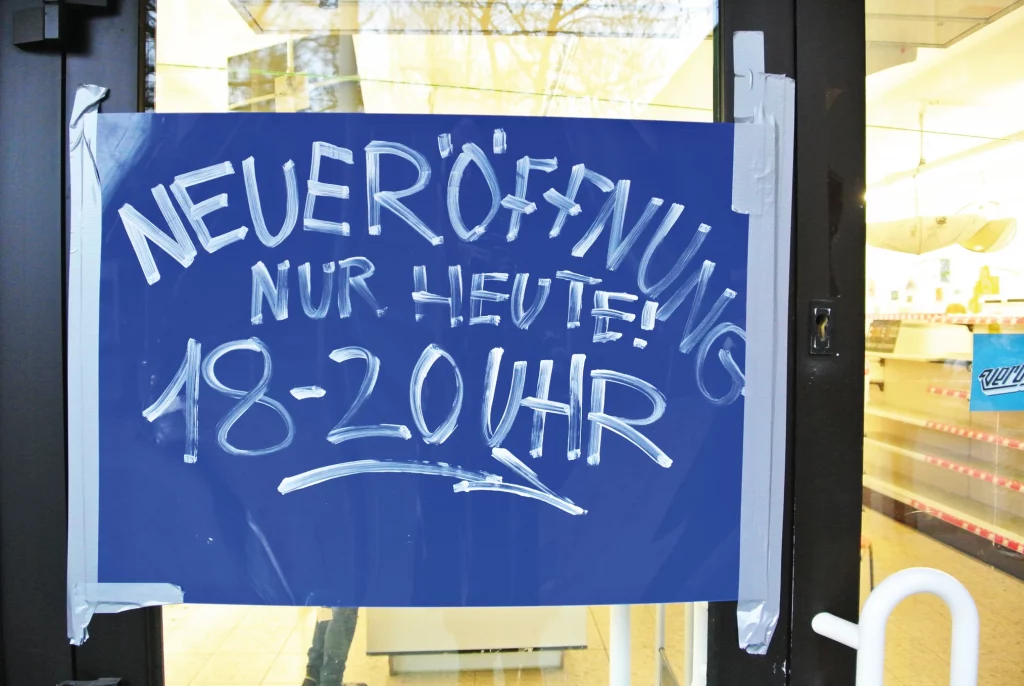 NEUERÖFFNUNG
NUR HEUTE!
18-20 UHR